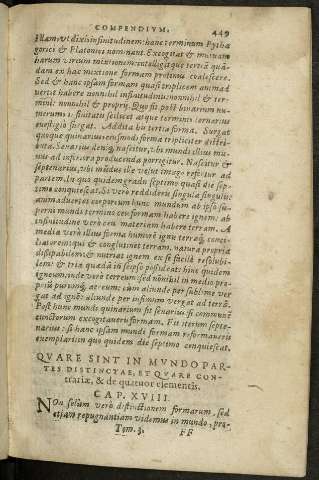 COMPENDIVM. 449
illam, vt dixi, infinitudinem: hanc terminum Pytha
gorici & Platonici nominant. Excogitat & mutuam
harum virium mixtionem: intelligitque tertiã quã-
dam ex hac mixtione formam protinus coalescere.
Sed & hanc ipsam formam quasi triplicem animad
vertit habere nonnihil infinitudinis: nonnihil & ter-
mini: nonnihil & proprij. Quo fit post binarium nu-
merum: infinitatis scilicet atque terminis ternarius
surgat. Addita his tertia forma. Surgat
quoque quinarius eiusmodi forma tripliciter distri-
buta. Senarius denique nascitur, vbi mundi illius mu-
nus ad inferiora producenda porrigitur. Nascitur &
septenarius, vbi mũdus ille velut imago refertur ad
partem. In quo quidem gradu septimo quasi die sep-
timo conquiescat. Si vero reddideris singula singulis:
animaduertes corporeum hunc mundum ab ipso su-
perni mundi termino ceu formam habere ignem: ab
infinitudine vero ceu materiem habere terram. A
media vero illius forma humore ignis terræque conci-
lia
& nutriat ignem ex se facile resolubi-
lem: & tria quædã in se ipso possideat: hinc quidem
igneum, inde vero terreum: sed nonnihil in medio pro-
prium
gat ad ignẽ: aliunde per infimum vergat ad terrã.
Post hunc mundi quinarium fit senarius si communẽ
cunctorum excogitaueris formam. Fit iterum septe-
narius: si hanc ipsam mundi formam reformaueris
exemplari: in quo quidem die septimo conquiescat.
QVARE SINT IN MVNDO PAR-
TES DISTINCTAE, ET QVARE CON-
trariæ, & de quatuor elementis.
CAP. XVIII.
NOn solum vero distinctionem formarum, sed
etiam repugnantiam videmus in mundo, pro-
Tom. 3. FF